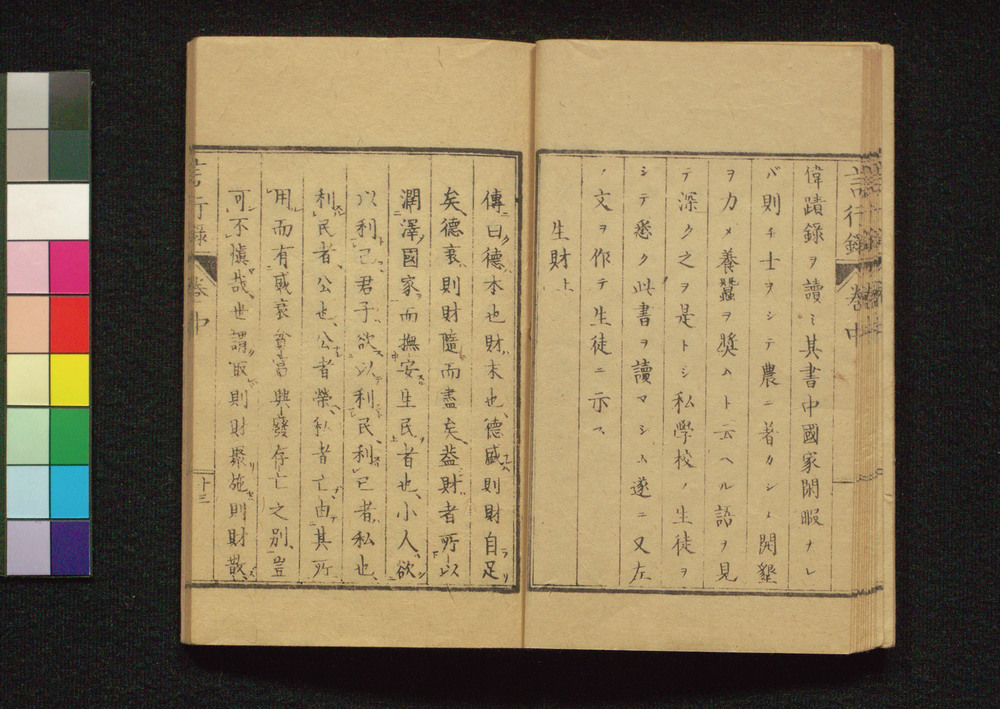 言行錄 卷中
偉蹟錄ヲ讀ミ其書中國家閑暇ナレ
バ則チ士ヲシテ農ニ著カシメ開墾
ヲカメ養蠶ヲ奬ムト云ヘル語ヲ見
テ深ク之ヲ是トシ私學校ノ生徒ヲ
シテ悉ク此書ヲ讀マシム遂ニ又左
ノ文ヲ作テ生徒ニ示ス
生財上
傳曰德本也財末也德盛則財自足
矣德衰則財隨而盡矣蓋財者所以
潤澤國家而撫安生民者也小人欲
以利己君子欲以利民利己者私也
利民者公也公者榮私者亡由其所
用而有盛衰貧富興廢存亡之別豈
可不愼哉世謂取則財聚施則財散
言行錄 卷中 十三